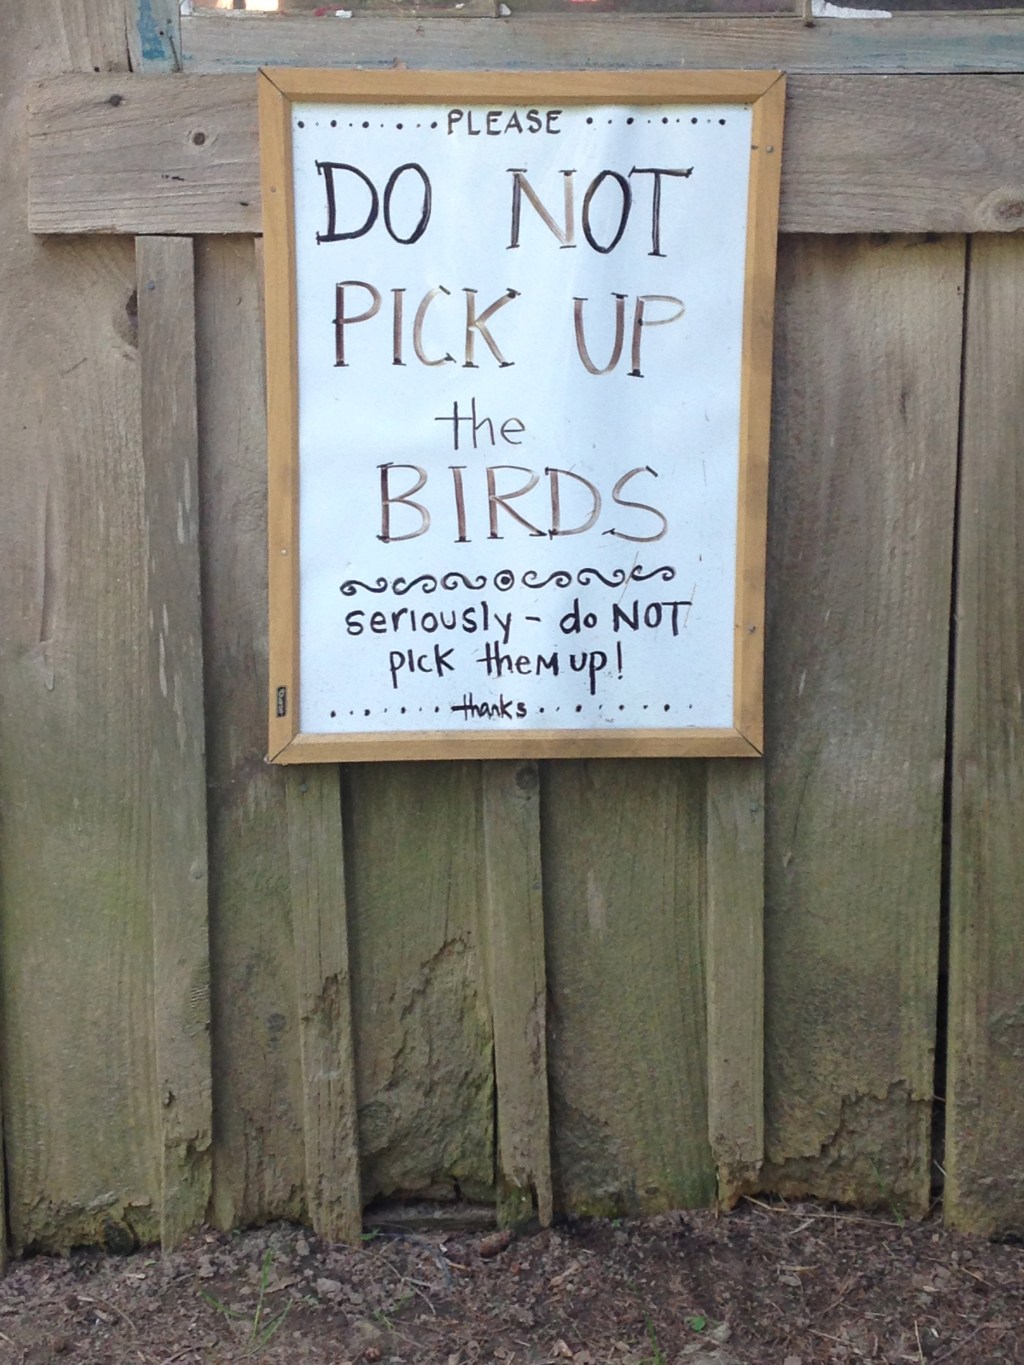 PLEASE
DO NOT
PICK UP
the
BIRDS
seriously - do NOT
pick them up!
thanks